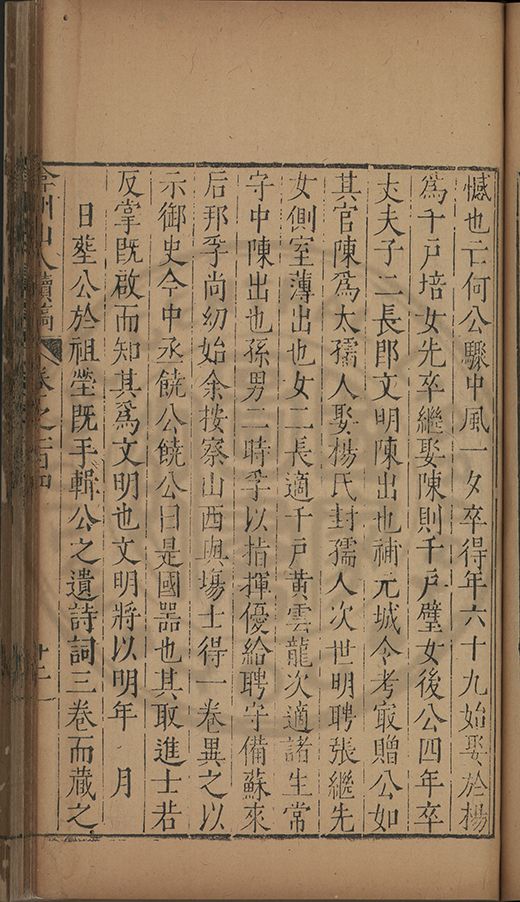 憾也亡何公驟中風一夕卒得年六十九始娶於楊
為千戶培女先卒繼娶陳則千戶璧女後公四年卒
丈夫子二長郎文明陳出也補元城令考最贈公如
其官陳為太孺人娶楊氏封孺人次世明聘張繼先
女側室薄出也女二長適千戶黃雲龍次適諸生常
守中陳出也孫男二時季以指揮優給聘守備蘇來
后邦季尚幼始余按察山西與塲士得一卷異之以
示御史今中丞饒公饒公曰是國器也其取進士若
反掌既啟而知其為文明也文明將以明年 月
日塟公於祖塋既手輯公之遺詩詞三卷而藏之
弇州山人續稿 卷之一百四 廿二